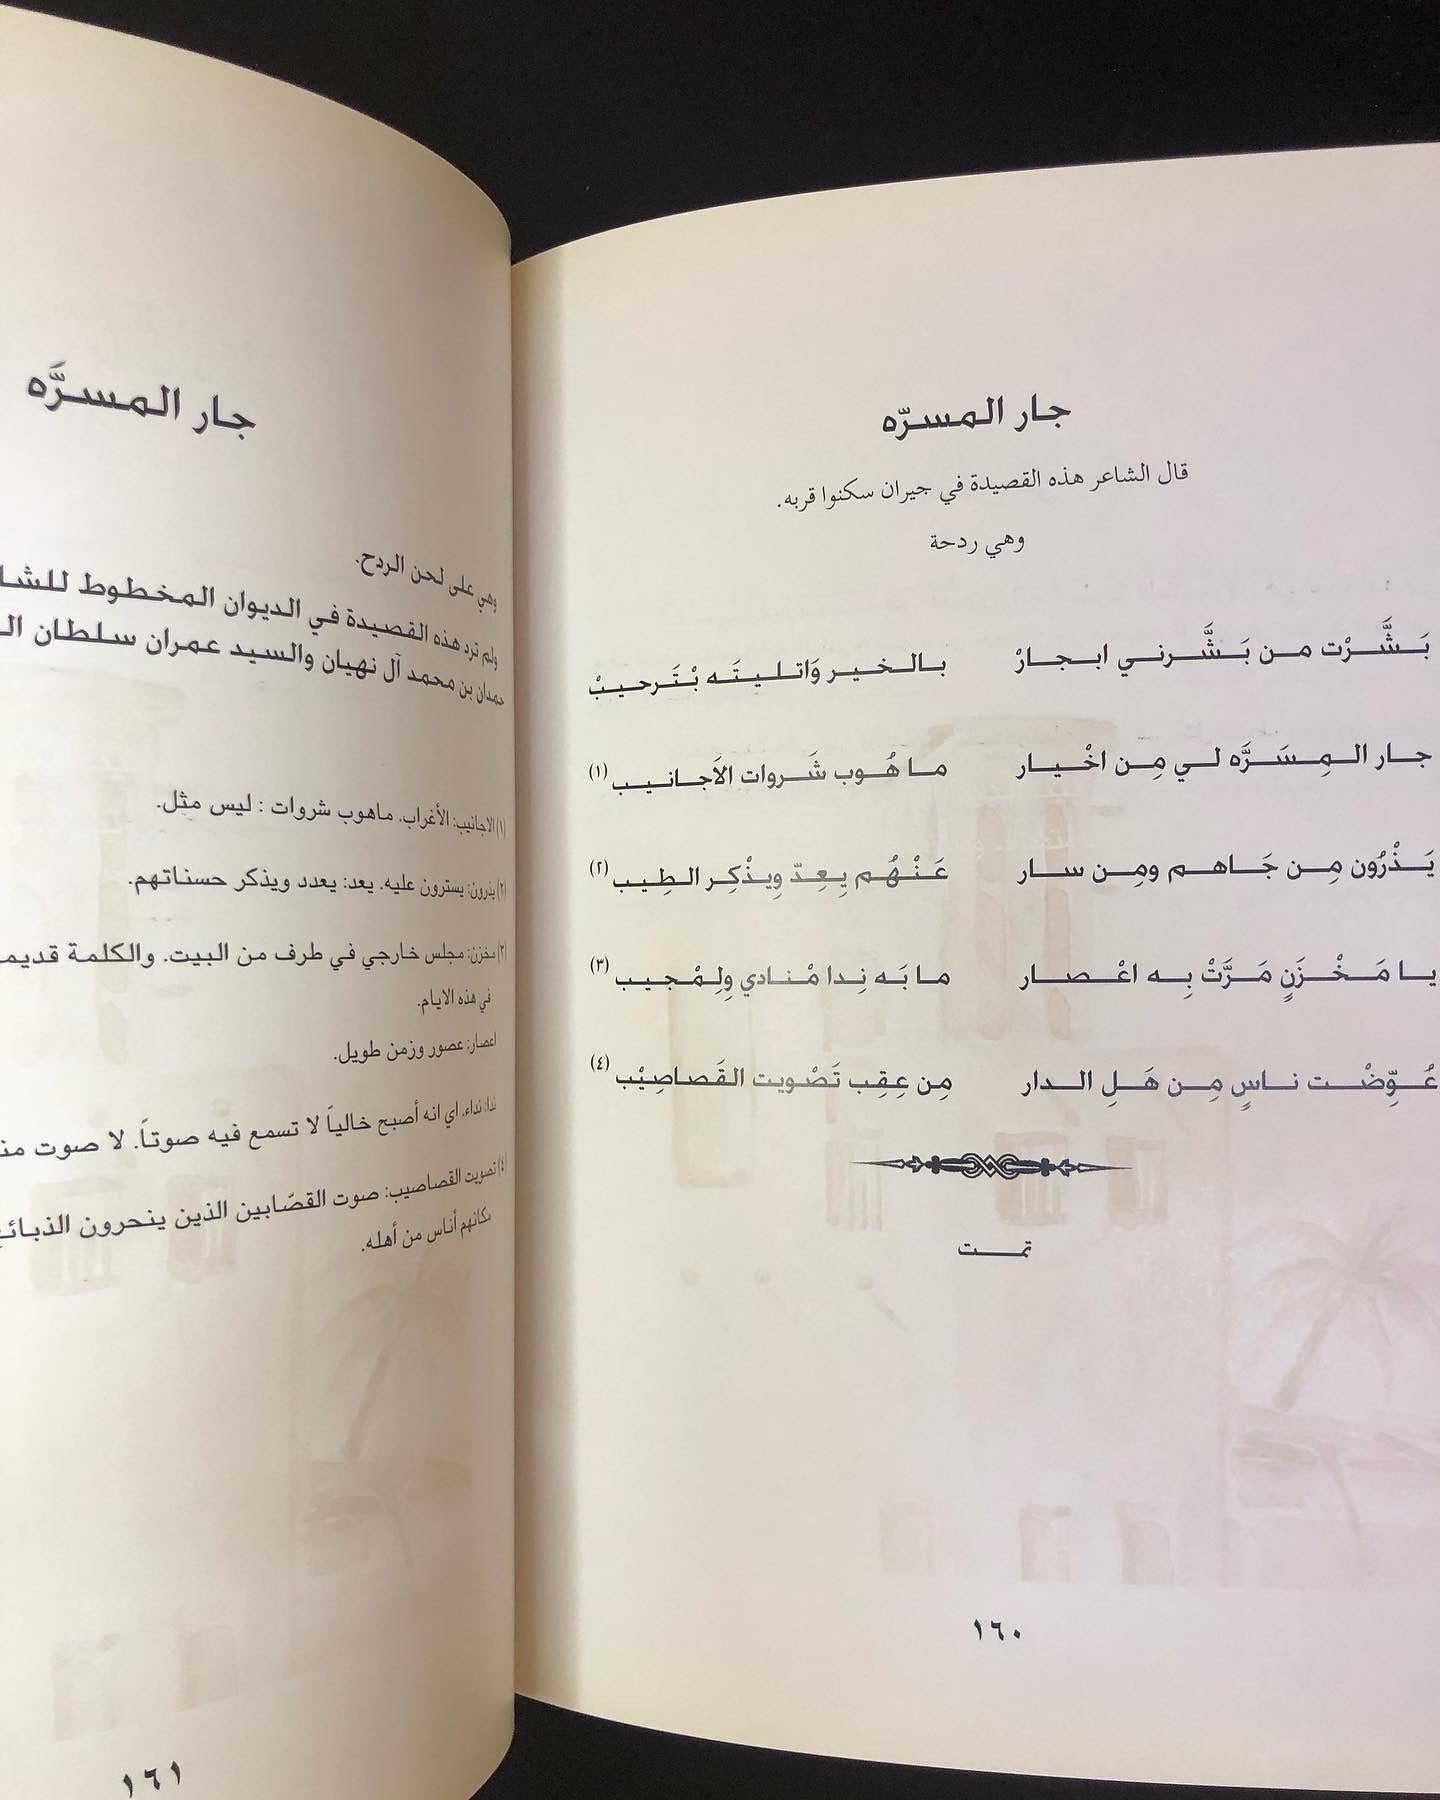 جار المسرّه
قال الشاعر هذه القصيدة في جيران سكنوا قربه.
وهي ردحة
بَشَّرْت من بَشَّرني ابجارْ بالخير وَاتليتَه بْتَرحيبْ
جار المِسَرَّه لي مِن اخْيار ما هُوب شَروات الاَجانيب (١)
يَذْرُون مِن جَاهم ومِن سار عَنْهُم يِعِدّ وِيذْكِر الطِيب (٢)
يا مَخْزَنٍ مَرَّتْ بِه اعْصار ما بَه نِدا مْنادي وِلِمْجيب (٣)
عُوِّضْت ناسٍ مِن هَلِ الدار مِن عِقِب تَصْويت القَصاصِيْب (٤)
تمت
١٦٠
جار المسرَّه
وهي على لحن الردح.
ولم ترد هذه القصيدة في الديوان المخطوط
حمدان بن محمد آل نهيان والسيد عمران سلطان
(١) الاجانيب: الأغراب. ماهوب شروات : ليس مثل.
(٢) يذرون: يسترون عليه. يعد: يعدد ويذكر حسناتهم.
(٣) مخزن: مجلس خارجي في طرف من البيت. والكلمة
في هذه الايام.
اعصار: عصور وزمن طويل.
ندا: نداء. اي انه أصبح خالياً لا تسمع فيه صوتاً. لا صوت
(٤) تصويت القصاصيب: صوت القصّابين الذين ينحرون
مكانهم أناس من أهله.
١٦١